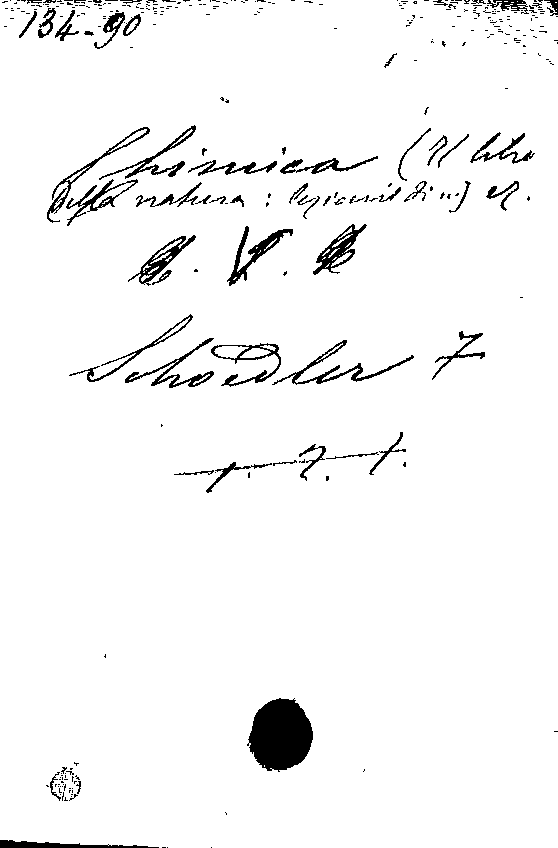 134-90
Chimica (Il libro
della natura: lezioni di ...) ez.
V.
Schoedler F
1. 2. 1.